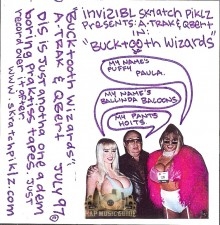 INVIZIBL SKRATCH PIKLZ
PRESENTS: A-TRAK & QBERT
IN:
"BUCKTOOTH WIZARDS"
MY NAME'S
PUFFY
PAULA.
MY NAME'S
BALLINDA BALOONS
MY PANTS
HOITS
"BUCKTOOTH WIZARDS"
A-TRAK & QBERT JULY 97©
DIS IS JUST ANOTHA ONE A DEM
BORING PRAKTISS TAPES. JUST
RECORD OVER IT AFTER
www.skratchpiklz.com
RAP MUSIC GUIDE